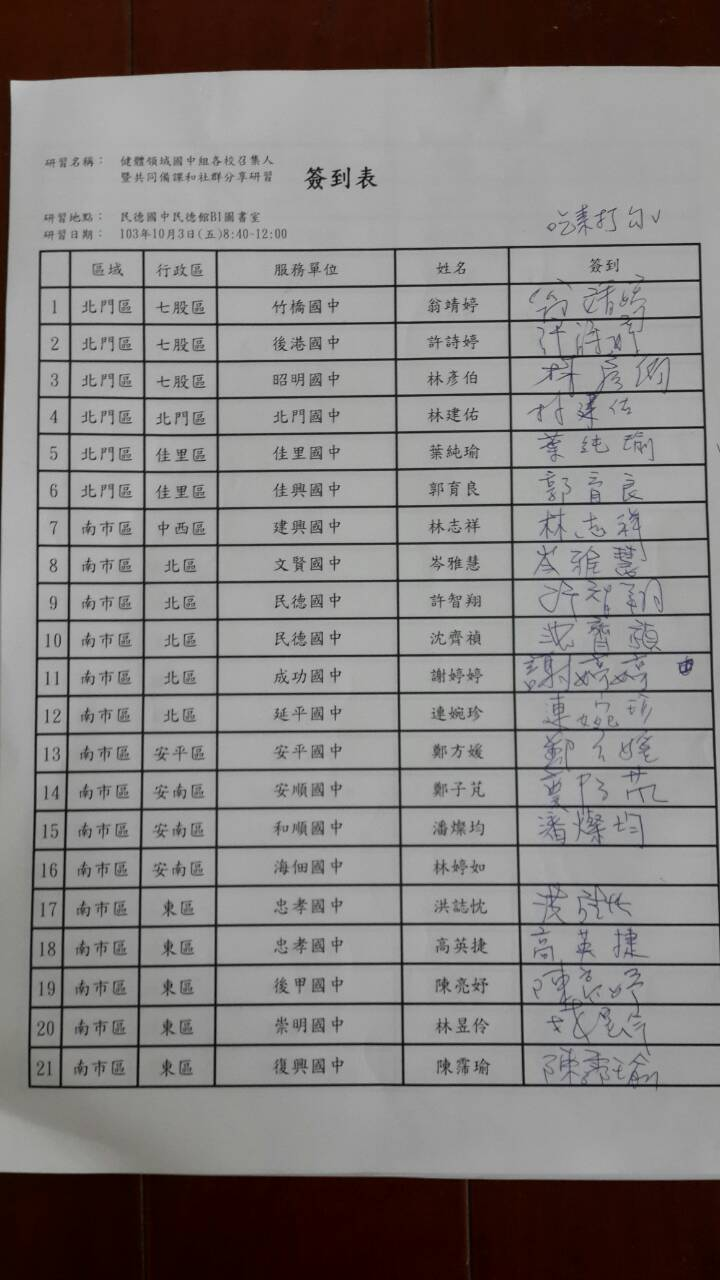 研習名稱： 健體領域國中組各校召集人
暨共同備課和社群分享研習
簽到表
研習地點： 民德國中民德館B1圖書室
研習日期： 103年10月3日(五)8:40-12:00
吃素打勾∨
區域 行政區 服務單位 姓名 簽到
1 北門區 七股區 竹橋國中 翁靖婷 翁靖婷
2 北門區 七股區 後港國中 許詩婷 許詩婷
3 北門區 七股區 昭明國中 林彥伯 林彥伯
4 北門區 北門區 北門國中 林建佑 林建佑
5 北門區 佳里區 佳里國中 葉純瑜 葉純瑜
6 北門區 佳里區 佳興國中 郭育良 郭育良
7 南市區 中西區 建興國中 林志祥 林志祥
8 南市區 北區 文賢國中 岑雅慧 岑雅慧
9 南市區 北區 民德國中 許智翔 許智翔
10 南市區 北區 民德國中 沈齊禎 沈齊禎
11 南市區 北區 成功國中 謝婷婷 謝婷婷
12 南市區 北區 延平國中 連婉珍 連婉珍
13 南市區 安平區 安平國中 鄭方媛 鄭方媛
14 南市區 安南區 安順國中 鄭子芃
15 南市區 安南區 和順國中 潘燦均 潘燦均
16 南市區 安南區 海佃國中 林婷如
17 南市區 東區 忠孝國中 洪誌忱
18 南市區 東區 忠孝國中 高英捷 高英捷
19 南市區 東區 後甲國中 陳亮妤 陳亮妤
20 南市區 東區 崇明國中 林昱伶
21 南市區 東區 復興國中 陳霈瑜 陳霈瑜